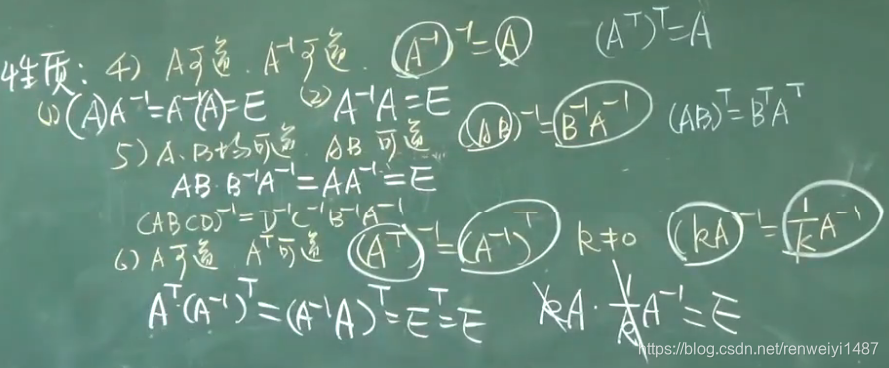 性质: 4) A可逆. A⁻¹可逆. (A⁻¹)⁻¹=A (Aᵀ)ᵀ=A
(1)(A)A⁻¹=A⁻¹(A)=E (2) A⁻¹A=E (AB)⁻¹=B⁻¹A⁻¹ (AB)ᵀ=BᵀAᵀ
5) A、B均可逆. AB可逆
AB·B⁻¹A⁻¹=AA⁻¹=E
(ABCD)⁻¹=D⁻¹C⁻¹B⁻¹A⁻¹
6) A可逆 Aᵀ可逆 (Aᵀ)⁻¹=(A⁻¹)ᵀ k≠0 (kA)⁻¹=1/k A⁻¹
Aᵀ·(A⁻¹)ᵀ=(A⁻¹A)ᵀ=Eᵀ=E kA·1/k A⁻¹=E
https://blog.csdn.net/renweiyi1487